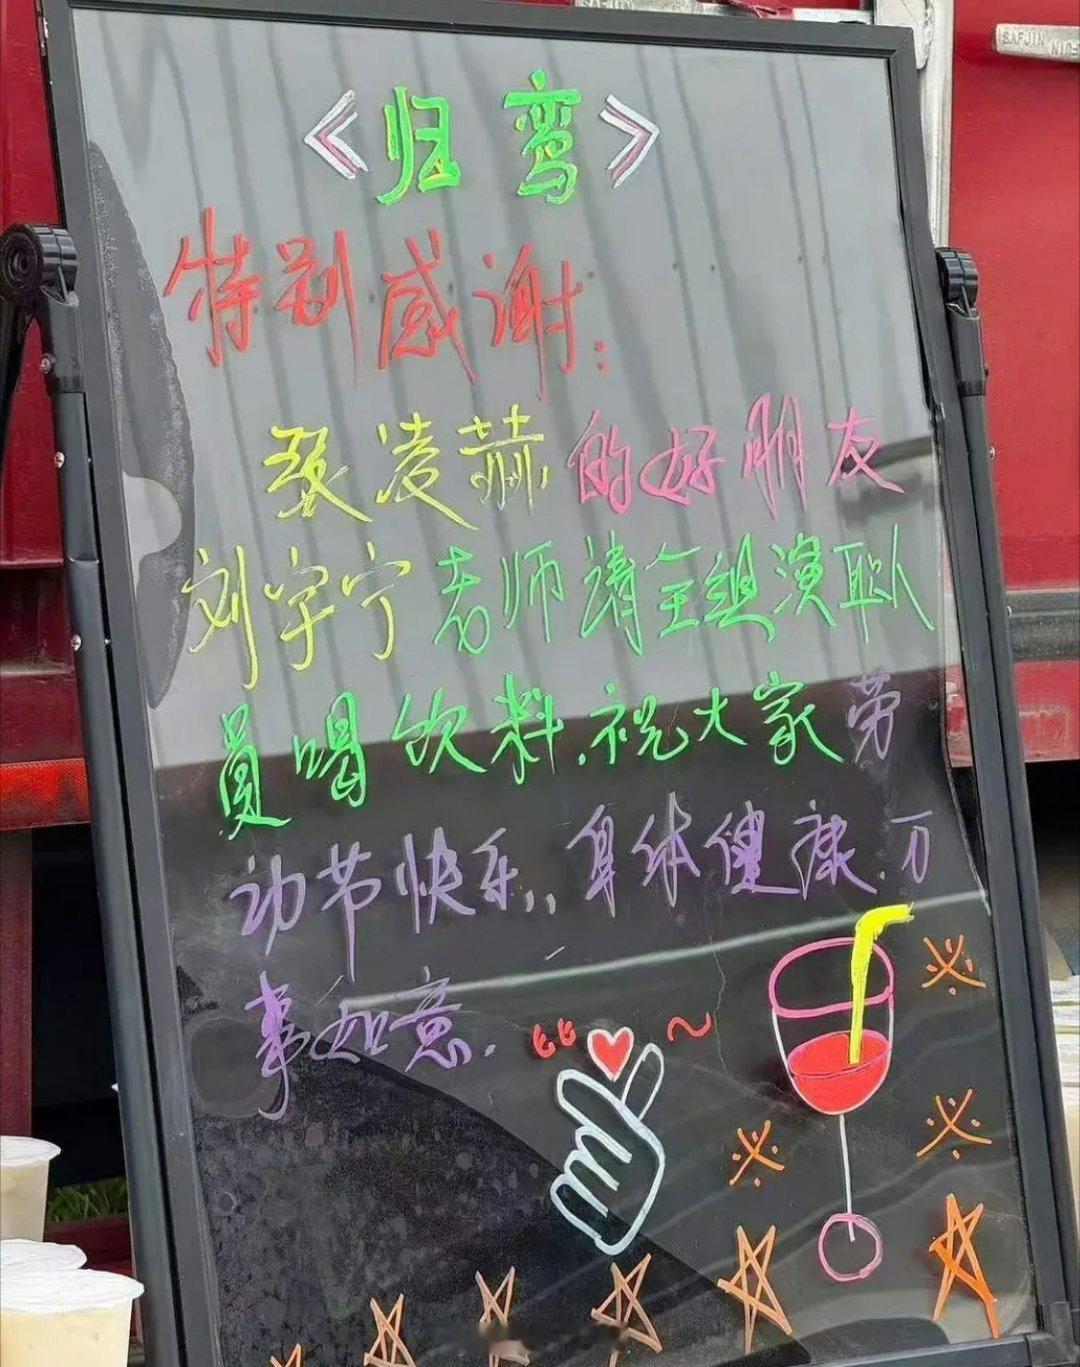 《归鸾》
特别感谢:
张凌赫的好朋友
刘宇宁老师请全组演职人
员喝饮料.祝大家劳
动节快乐,,身体健康.万
事如意.
SAFJIN